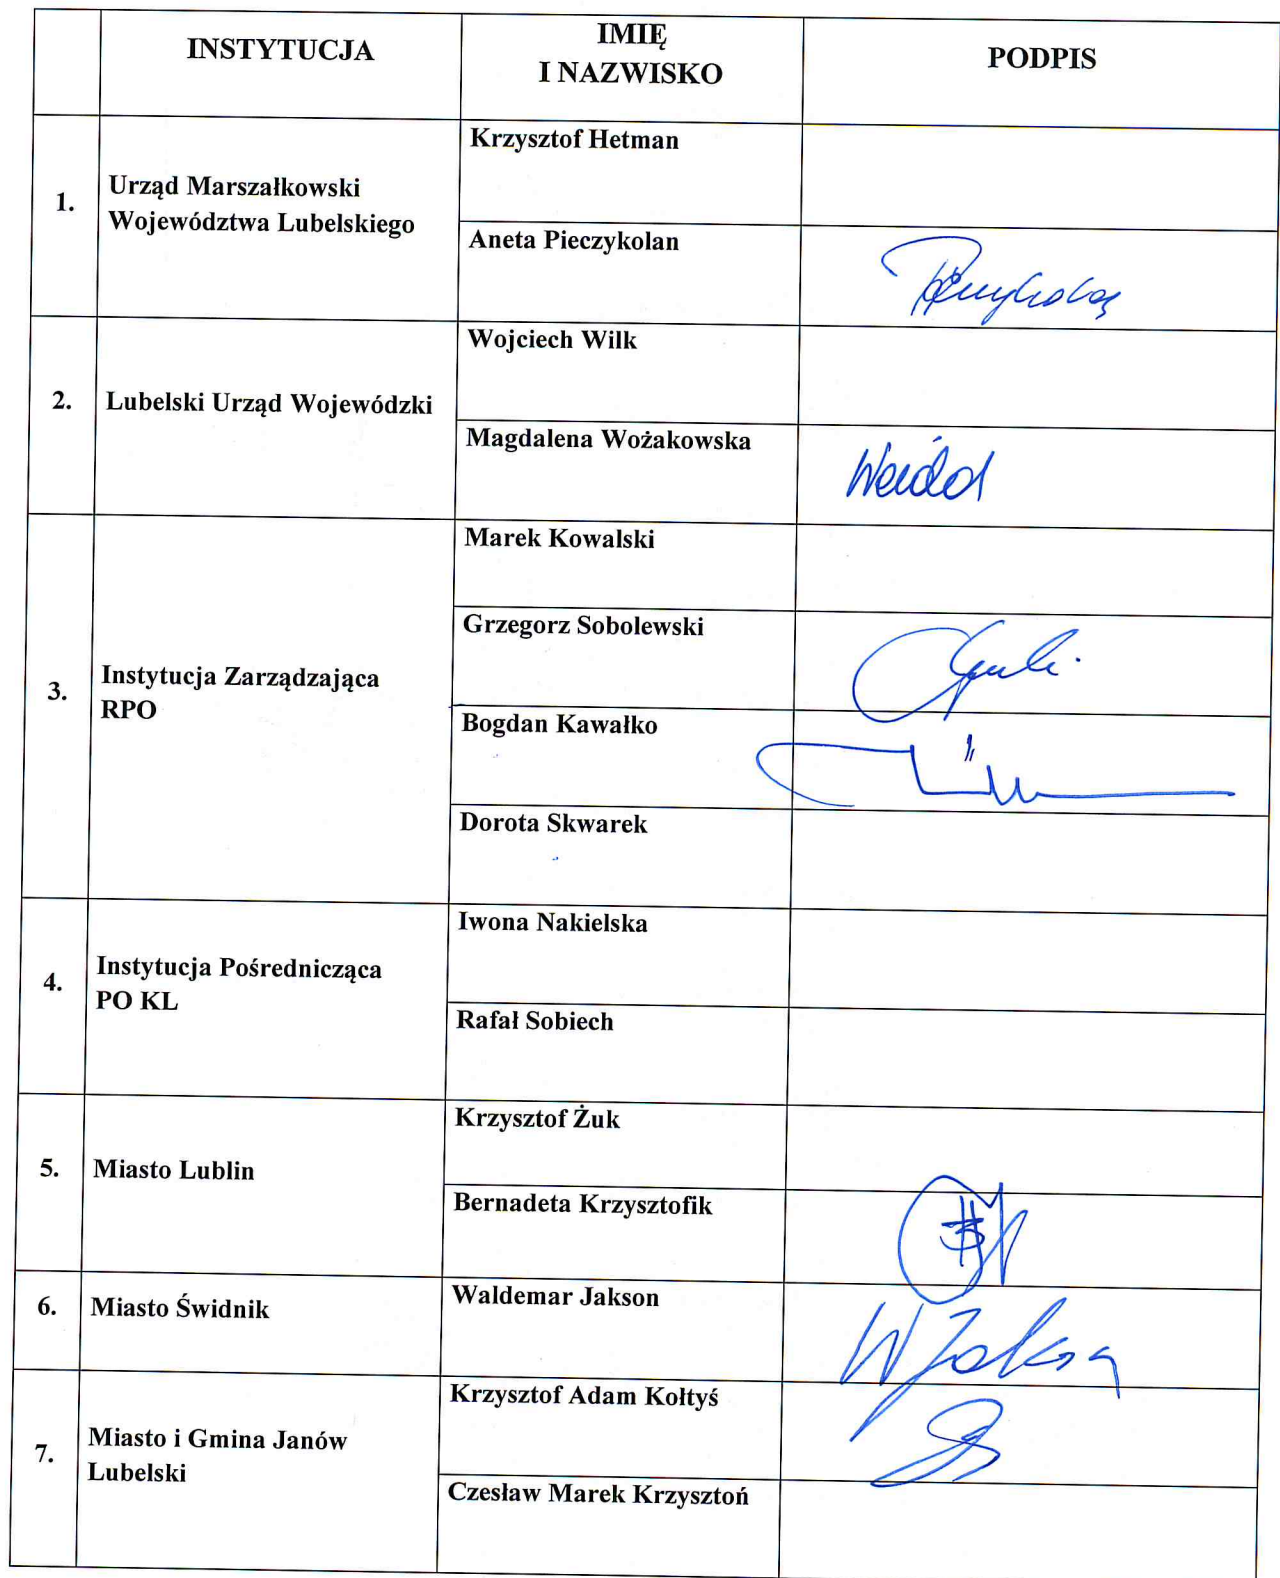 INSTYTUCJA
IMIĘ
I NAZWISKO
PODPIS
1.
Urząd Marszałkowski
Województwa Lubelskiego
Krzysztof Hetman
Aneta Pieczykolan
2.
Lubelski Urząd Wojewódzki
Wojciech Wilk
Magdalena Wożakowska
3.
Instytucja Zarządzająca
RPO
Marek Kowalski
Grzegorz Sobolewski
Bogdan Kawałko
Dorota Skwarek
4.
Instytucja Pośrednicząca
PO KL
Iwona Nakielska
Rafał Sobiech
5.
Miasto Lublin
Krzysztof Żuk
Bernadeta Krzysztofik
6.
Miasto Świdnik
Waldemar Jakson
7.
Miasto i Gmina Janów
Lubelski
Krzysztof Adam Kołtyś
Czesław Marek Krzysztoń